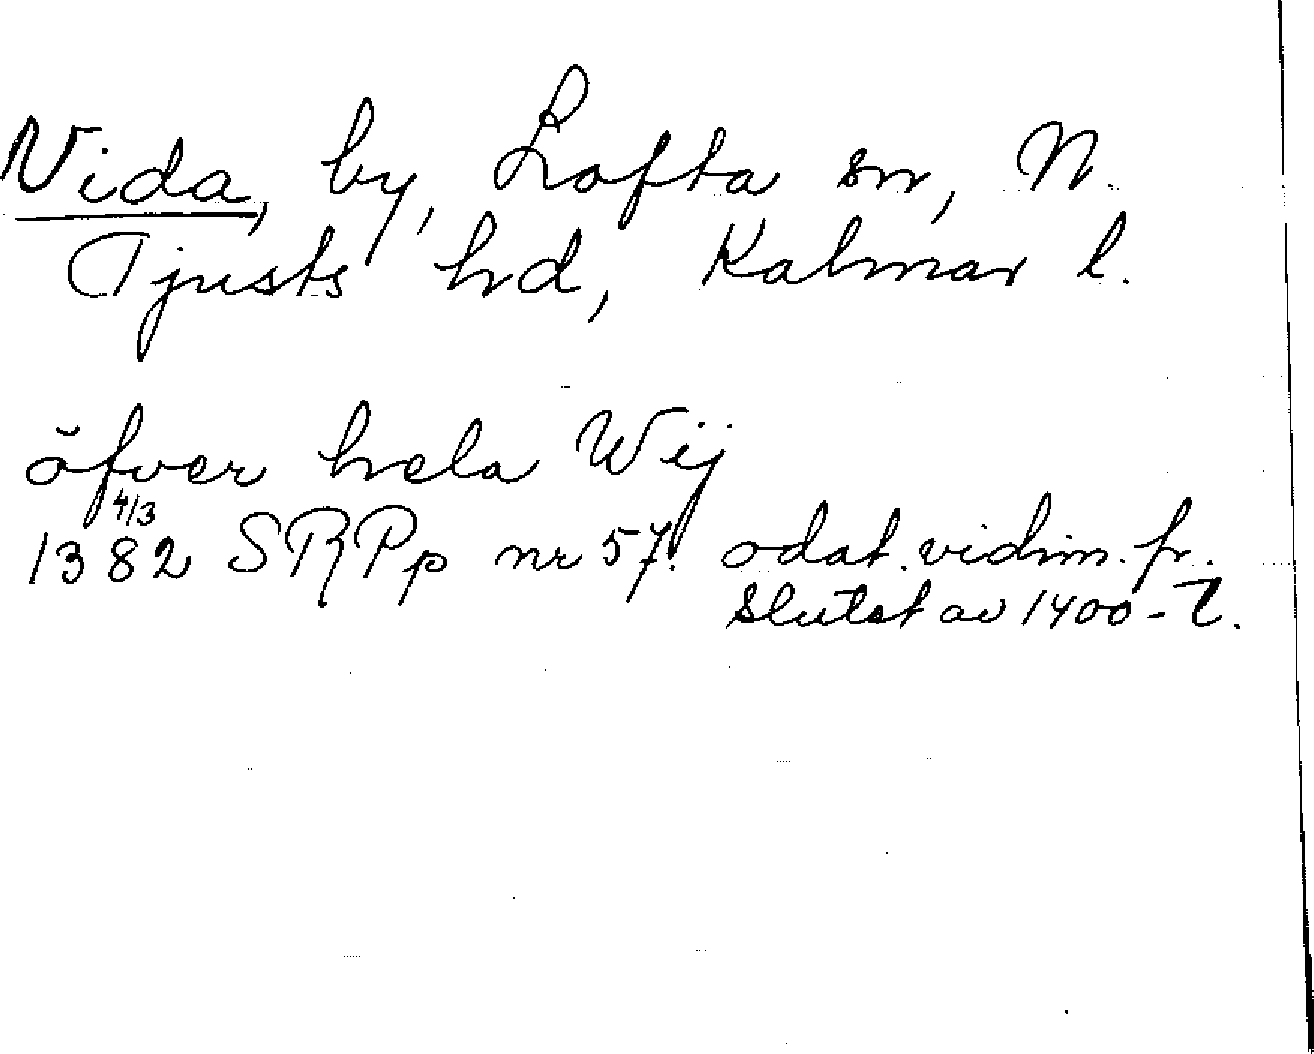 Vida, by, Lofta sn, N.
Tjusts hd, Kalmar l.
öfver hela Wij
4/3
1382 SRPp nr 57. odat. vidim. fr.
slutet av 1400-t.